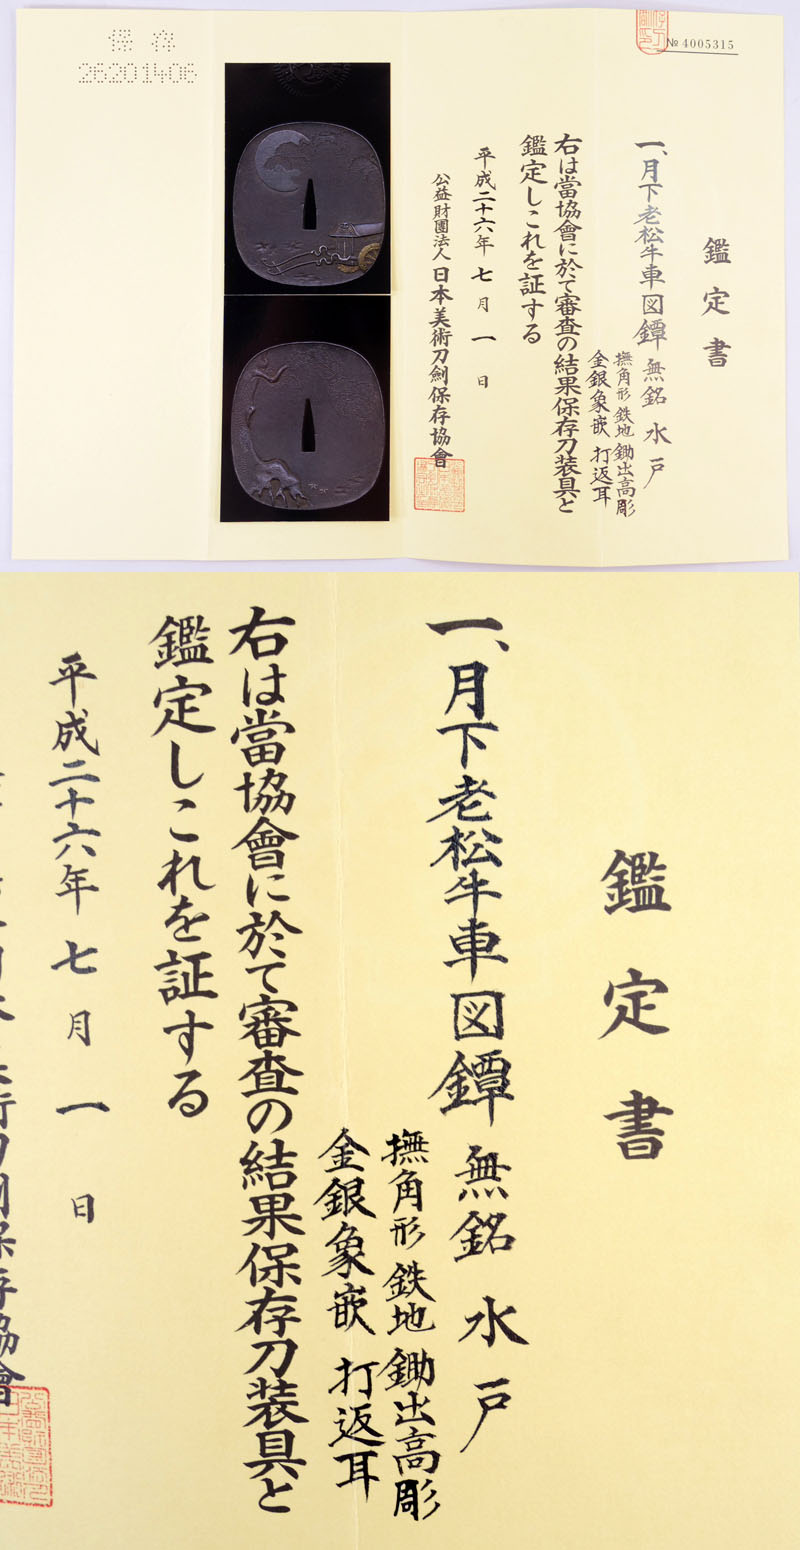 保存
26201406
№ 4005315
鑑定書
一、月下老松牛車図鐔 無銘 水戸
撫角形 鉄地 鋤出高彫
金銀象嵌 打返耳
右は當協會に於て審査の結果保存刀装具と
鑑定しこれを証する
平成二十六年 七月 一日
公益財團法人 日本美術刀剣保存協會
鑑定書
一、月下老松牛車図鐔 無銘 水戸
撫角形 鉄地 鋤出高彫
金銀象嵌 打返耳
右は當協會に於て審査の結果保存刀装具と
鑑定しこれを証する
平成二十六年 七月 一日